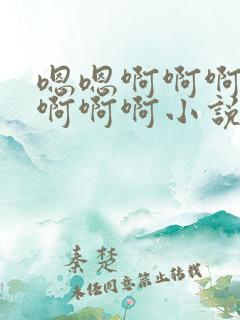 嗯嗯啊啊啊
啊啊啊小说
秦楚
未经同意禁止转载